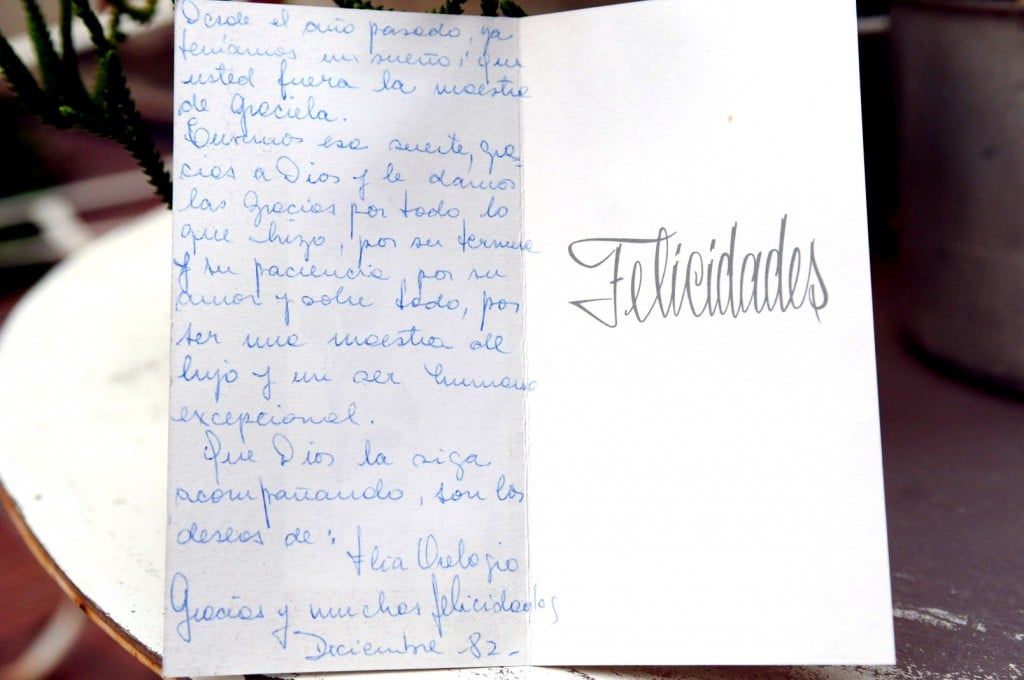 Desde el año pasado, ya
teníamos un sueño; que
usted fuera la maestra
de Graciela.
Tuvimos esa suerte, gra-
cias a Dios y le damos
las gracias por todo lo
que hizo, por su ternura
y su paciencia, por su
amor y sobre todo, por
ser una maestra de
lujo y un ser humano
excepcional.
Que Dios la siga
acompañando, son los
deseos de:
Flia
Gracias y muchas felicidades
Diciembre 82-
Felicidades